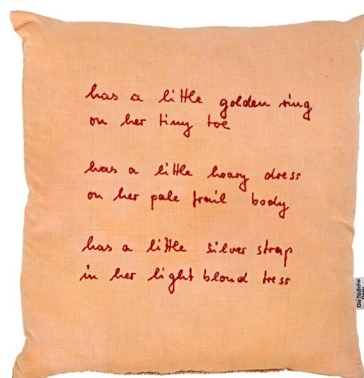 has a little golden ring
on her tiny toe
has a little hoary dress
on her pale frail body
has a little silver strap
in her light blond tress